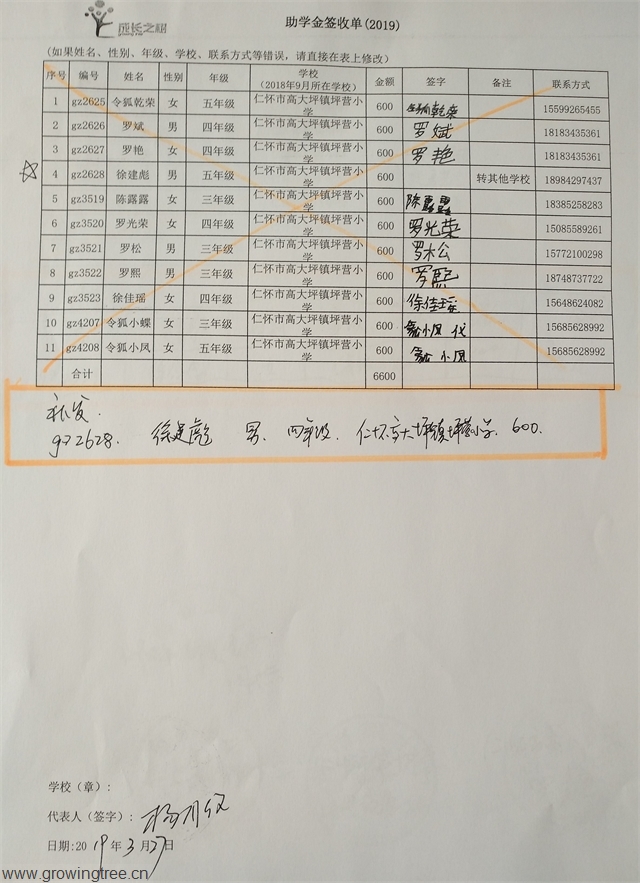 成长之树
助学金签收单(2019)
(如果姓名、性别、年级、学校、联系方式等错误，请直接在表上修改)
序号 编号 姓名 性别 年级 学校(2018年9月所在学校) 金额 签字 备注 联系方式
1 gz2625 令狐乾荣 女 五年级 仁怀市高大坪镇坪营小学 600 令狐乾荣 15599265455
2 gz2626 罗斌 男 四年级 仁怀市高大坪镇坪营小学 600 罗斌 18183435361
3 gz2627 罗艳 女 四年级 仁怀市高大坪镇坪营小学 600 罗艳 18183435361
4 gz2628 徐建彪 男 五年级 仁怀市高大坪镇坪营小学 600 转其他学校 18984297437
5 gz3519 陈露露 女 三年级 仁怀市高大坪镇坪营小学 600 陈露露 18385258283
6 gz3520 罗光荣 女 四年级 仁怀市高大坪镇坪营小学 600 罗光荣 15085589261
7 gz3521 罗松 男 三年级 仁怀市高大坪镇坪营小学 600 罗松 15772100298
8 gz3522 罗熙 男 三年级 仁怀市高大坪镇坪营小学 600 罗熙 18748737722
9 gz3523 徐佳瑶 女 四年级 仁怀市高大坪镇坪营小学 600 徐佳瑶 15648624082
10 gz4207 令狐小蝶 女 三年级 仁怀市高大坪镇坪营小学 600 令狐小凤 代 15685628992
11 gz4208 令狐小凤 女 五年级 仁怀市高大坪镇坪营小学 600 令狐小凤 15685628992
合计 6600
补发.
gz2628. 徐建彪 男. 四年级. 仁怀市高大坪镇坪营小学. 600.
学校（章）:
代表人（签字）:
日期:2019年3月27日
www.growingtree.cn